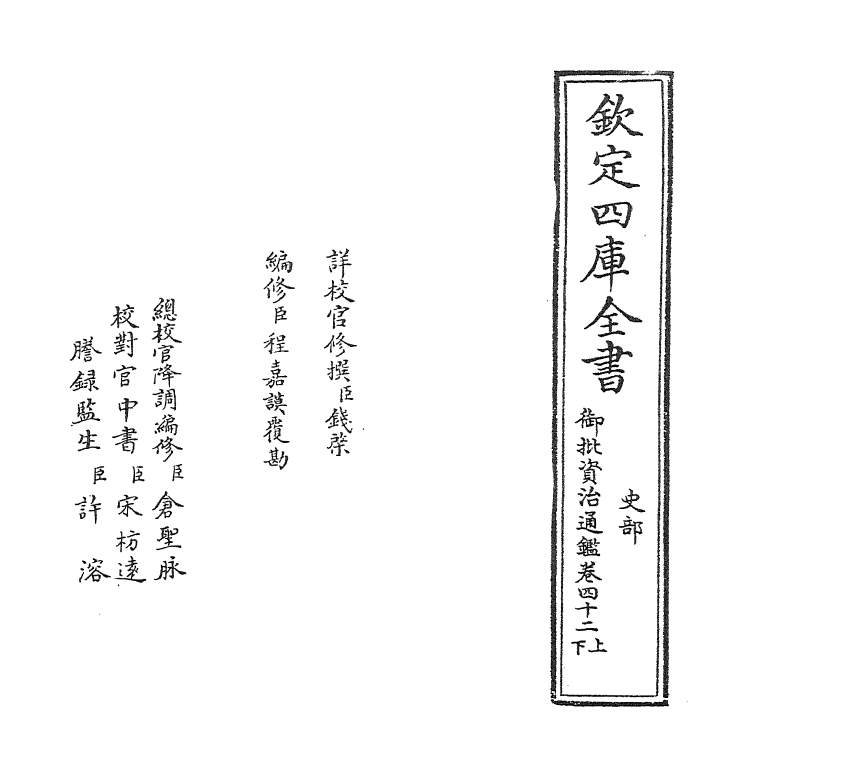 欽定四庫全書
史部
御批資治通鑑卷四十二上下
詳校官修撰臣錢棨
編修臣程嘉謨覆勘
總校官降調編修臣倉聖脉
校對官中書臣宋枋遠
謄録監生臣許溶